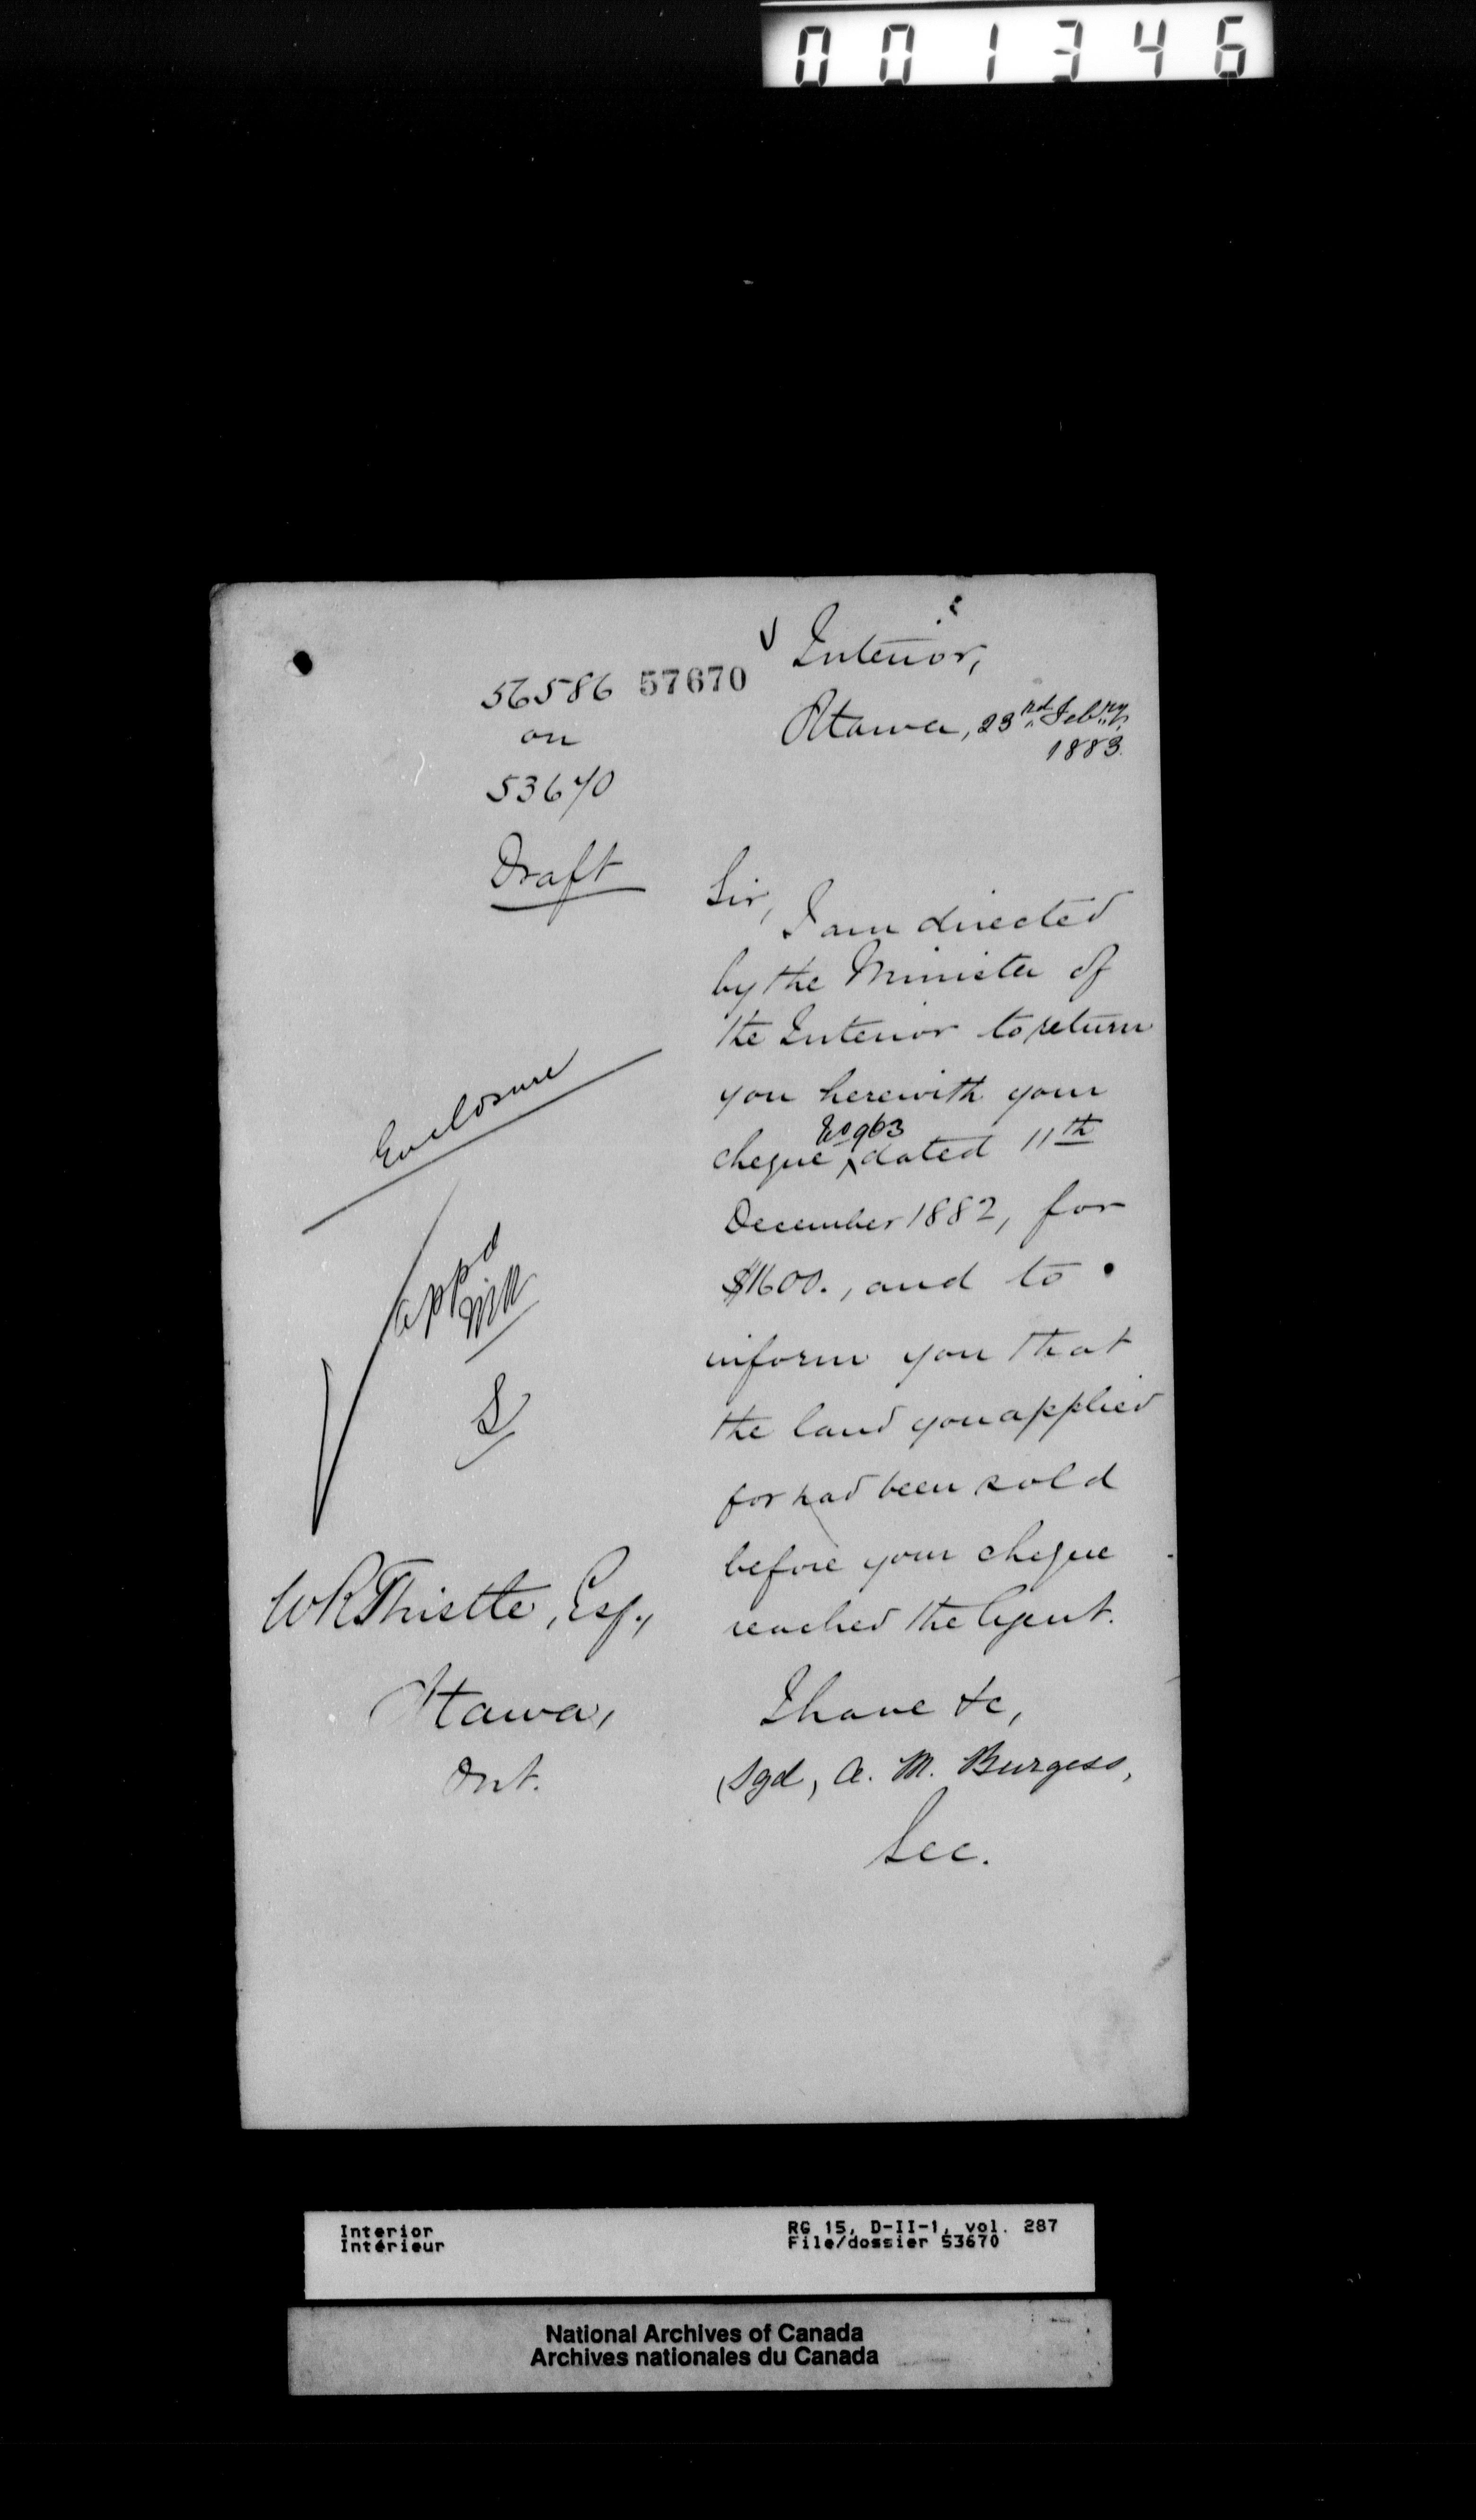 001346
Interior,
56586 57670
on
53670
Ottawa, 23rd Febry,
1883.
Draft
Sir,
I am directed
by the Minister of
the Interior to return
you herewith your
No 963
cheque, dated 11th
December 1882, for
$1600., and to
inform you that
the land you applied
for had been sold
before your cheque
reached the Agent.
I have &c,
(Sgd, A. M. Burgess,
Sec.
Enclosure
appd
W R Thistle, Esq.,
Ottawa,
Ont.
Interior
Intérieur
RG 15, D-II-1, vol. 287
File/dossier 53670
National Archives of Canada
Archives nationales du Canada